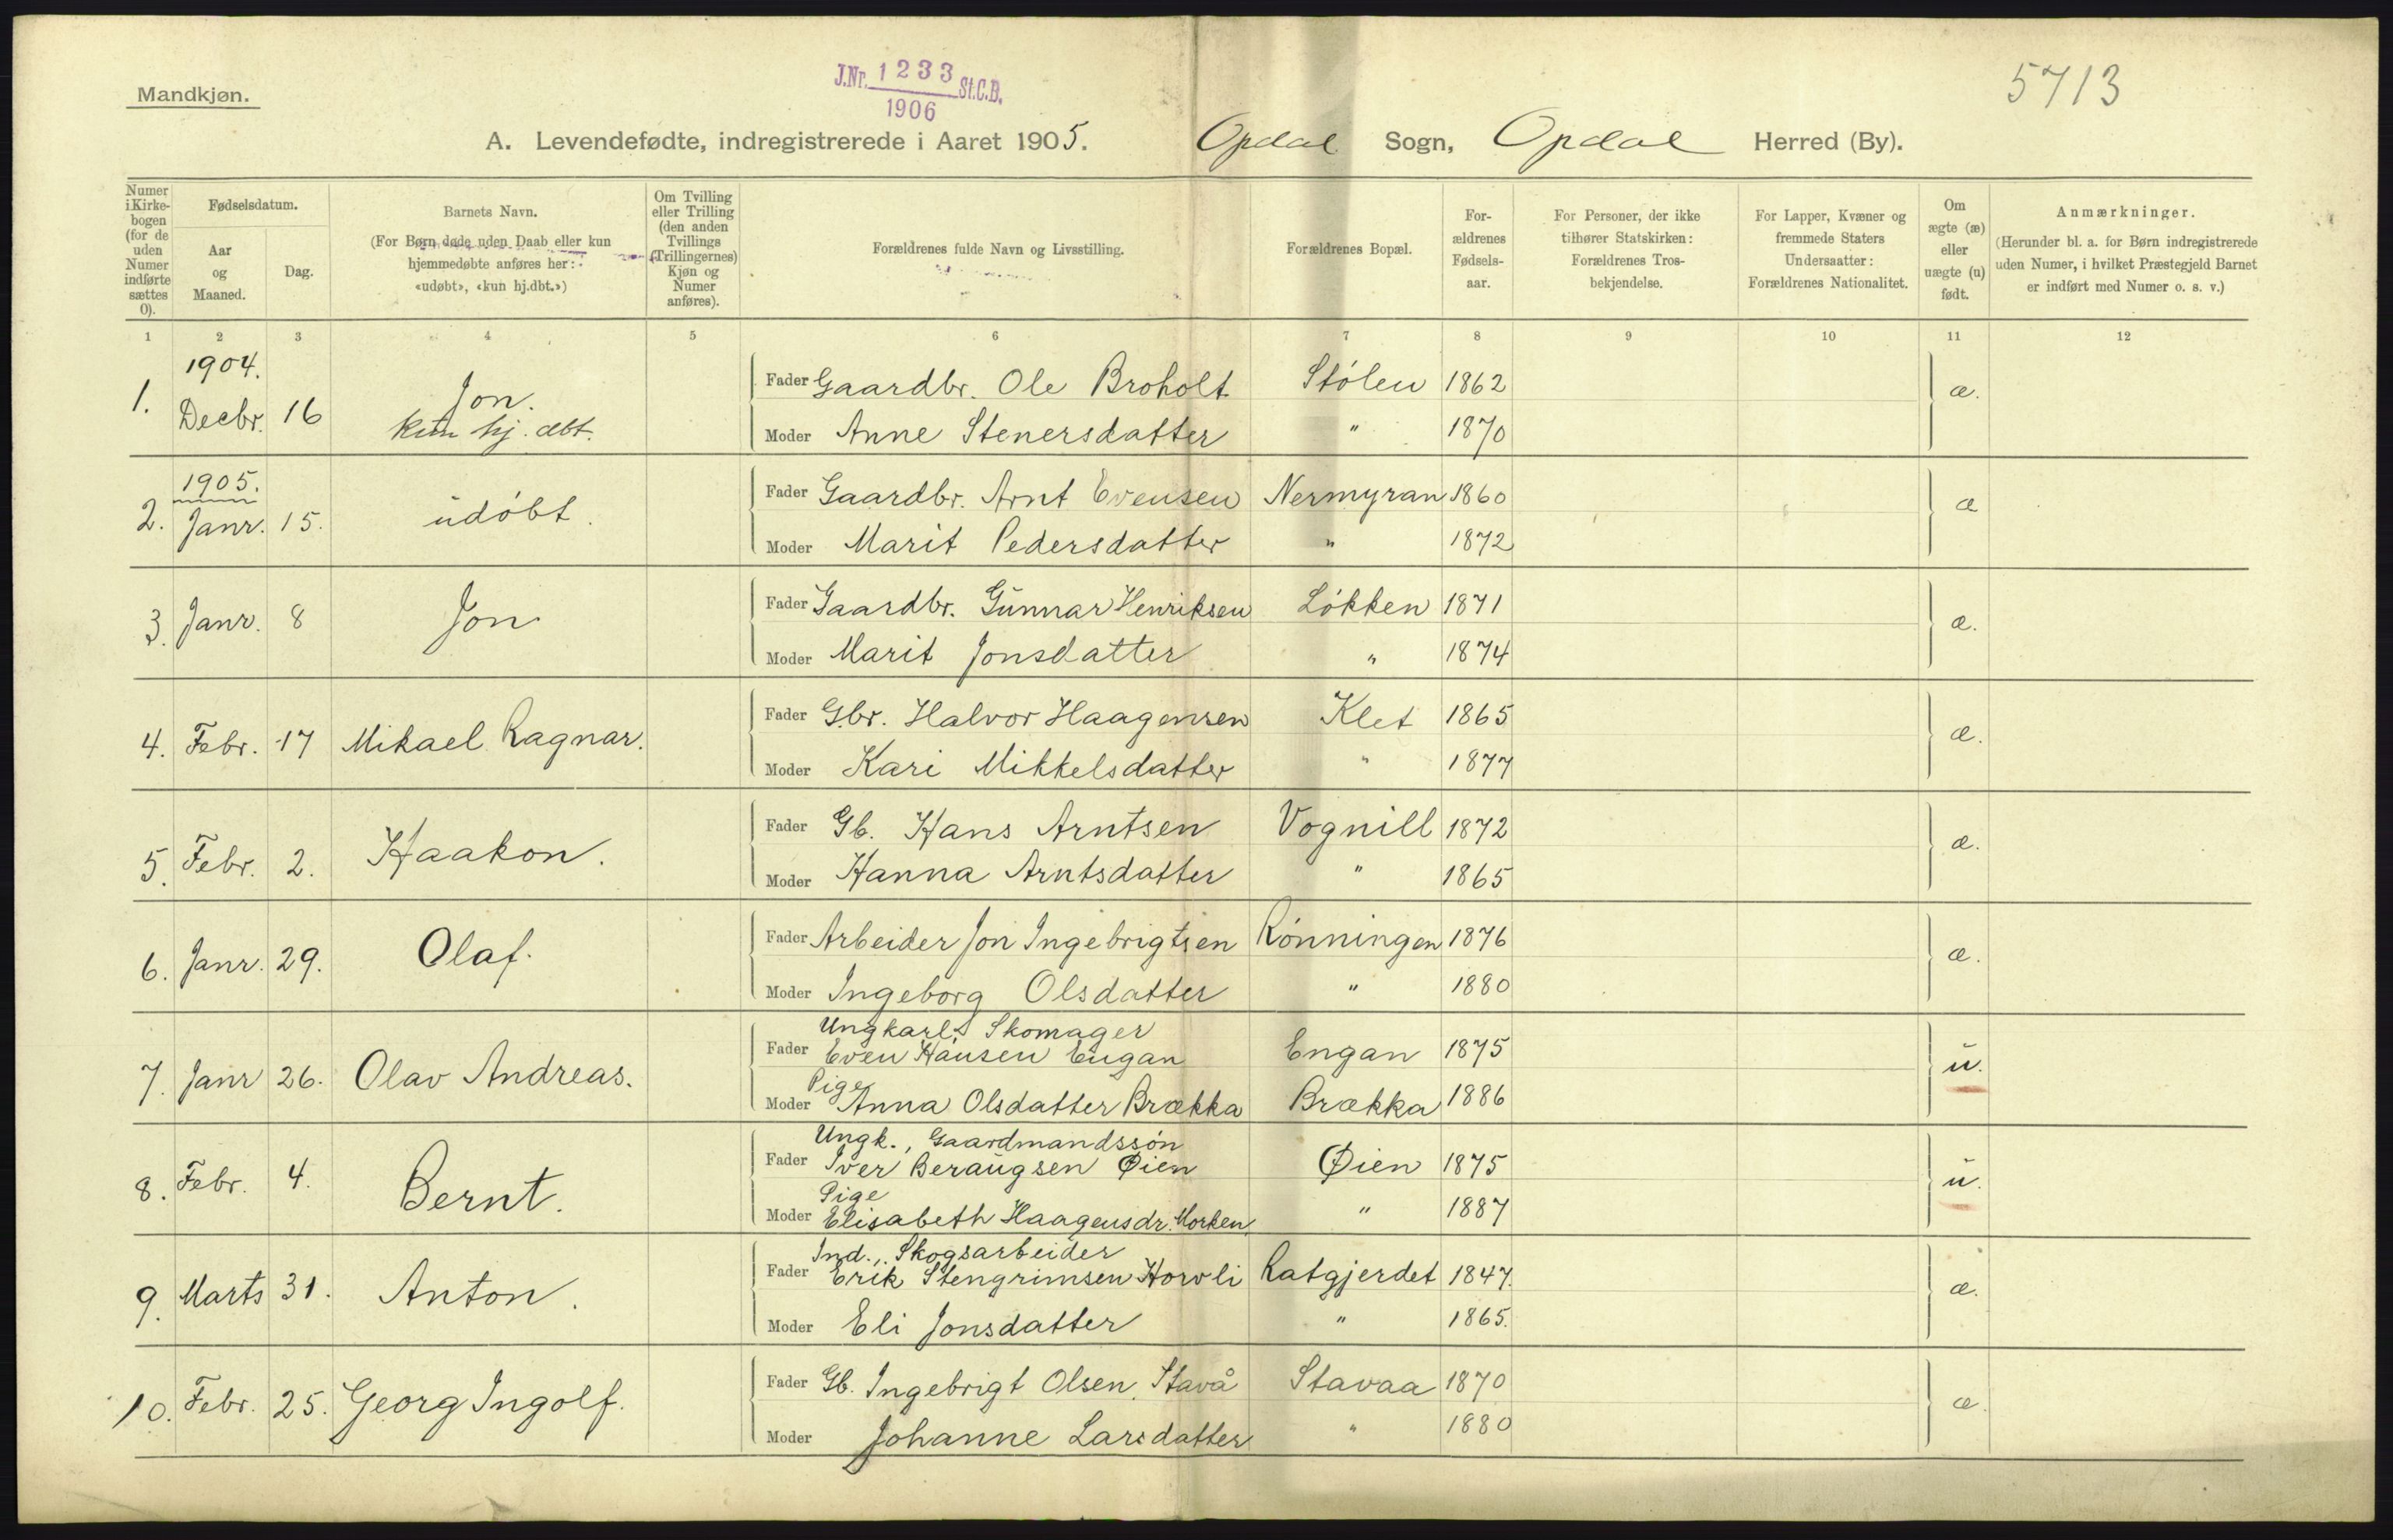 5713
Mandkjøn.
J.Nr. 1233 St.C.B.
1906
A. Levendefødte, indregistrerede i Aaret 1905. Opdal Sogn, Opdal Herred (By).
Numer i Kirkebogen (for de uden Numer indførte sættes 0).
Fødselsdatum.
Aar og Maaned.
Dag.
Barnets Navn.
(For Børn døde uden Daab eller kun hjemmedøbte anføres her: «udøbt», «kun hj.dbt.»)
Om Tvilling eller Trilling (den anden Tvillings (Trillingernes) Kjøn og Numer anføres).
Forældrenes fulde Navn og Livsstilling.
Forældrenes Bopæl.
Forældrenes Fødselsaar.
For Personer, der ikke tilhører Statskirken: Forældrenes Trosbekjendelse.
For Lapper, Kvæner og fremmede Staters Undersaatter: Forældrenes Nationalitet.
Om ægte (æ) eller uægte (u) født.
Anmærkninger.
(Herunder bl. a. for Børn indregistrerede uden Numer, i hvilket Præstegjeld Barnet er indført med Numer o. s. v.)
1 2 3 4 5 6 7 8 9 10 11 12
1904.
1. Decbr. 16 Jon. kun hj. dbt.
Fader Gaardbr. Ole Broholt Stølen 1862 æ.
Moder Anne Stenersdatter " 1870
1905.
2. Janr. 15. udøbt.
Fader Gaardbr. Arnt Evensen Nermyran 1860 æ
Moder Marit Pedersdatter " 1872
3. Janr. 8 Jon
Fader Gaardbr. Gunnar Henriksen Løkken 1871 æ.
Moder Marit Jonsdatter " 1874
4. Febr. 17 Mikael Ragnar.
Fader Gbr. Halvor Haagensen Klet 1865 æ.
Moder Kari Mikkelsdatter " 1877
5. Febr. 2. Haakon.
Fader Gb. Hans Arntsen Vognill 1872 æ.
Moder Hanna Arntsdatter " 1865
6. Janr. 29. Olaf.
Fader Arbeider Jon Ingebrigtsen Rønningen 1876 æ.
Moder Ingeborg Olsdatter " 1880
7. Janr 26. Olav Andreas.
Ungkarl, Skomager
Fader Even Hansen Engan Engan 1875 u.
Pige
Moder Anna Olsdatter Brækka Brækka 1886
8. Febr. 4. Bernt.
Ungk., Gaardmandssøn
Fader Iver Beraugsen Øien Øien 1875 u.
Pige
Moder Elisabeth Haagensdr. Morken " 1887
9. Marts 31. Anton.
Ind., Skogsarbeider
Fader Erik Stengrimsen Horvli Ratgjerdet 1847. æ.
Moder Eli Jonsdatter " 1865.
10. Febr. 25. Georg Ingolf.
Fader Gb. Ingebrigt Olsen Stavå Stavaa 1870 æ.
Moder Johanne Larsdatter " 1880